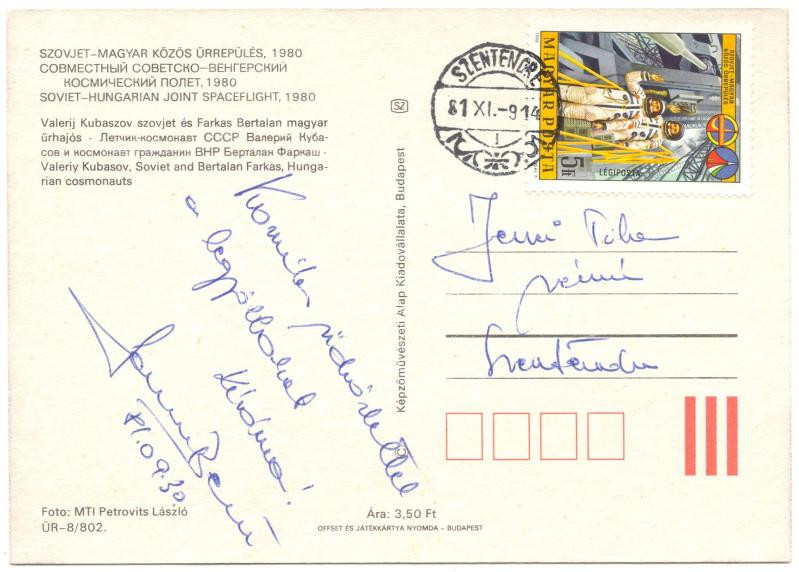 SZOVJET–MAGYAR KÖZÖS ŰRREPÜLÉS, 1980
СОВМЕСТНЫЙ СОВЕТСКО–ВЕНГЕРСКИЙ
КОСМИЧЕСКИЙ ПОЛЕТ, 1980
SOVIET–HUNGARIAN JOINT SPACEFLIGHT, 1980
Valerij Kubaszov szovjet és Farkas Bertalan magyar
űrhajós · Летчик-космонавт СССР Валерий Куба-
сов и космонавт гражданин ВНР Берталан Фаркаш ·
Valeriy Kubasov, Soviet and Bertalan Farkas, Hunga-
rian cosmonauts
Kozmikus üdvözlettel
a legjobbakat
kívánva!
81.09.30.
Foto: MTI Petrovits László
ÜR–8/802.
Ára: 3,50 Ft
OFFSET ÉS JÁTÉKKÁRTYA NYOMDA – BUDAPEST
SZ
Képzőművészeti Alap Kiadóvállalata, Budapest
©
SZENTENDRE
81 XI.–9 14
1
MAGYAR POSTA
5 Ft
LÉGIPOSTA
SZOVJET–MAGYAR
KÖZÖS ŰRREPÜLÉS
1980
Jenei Tiha
Szentendre